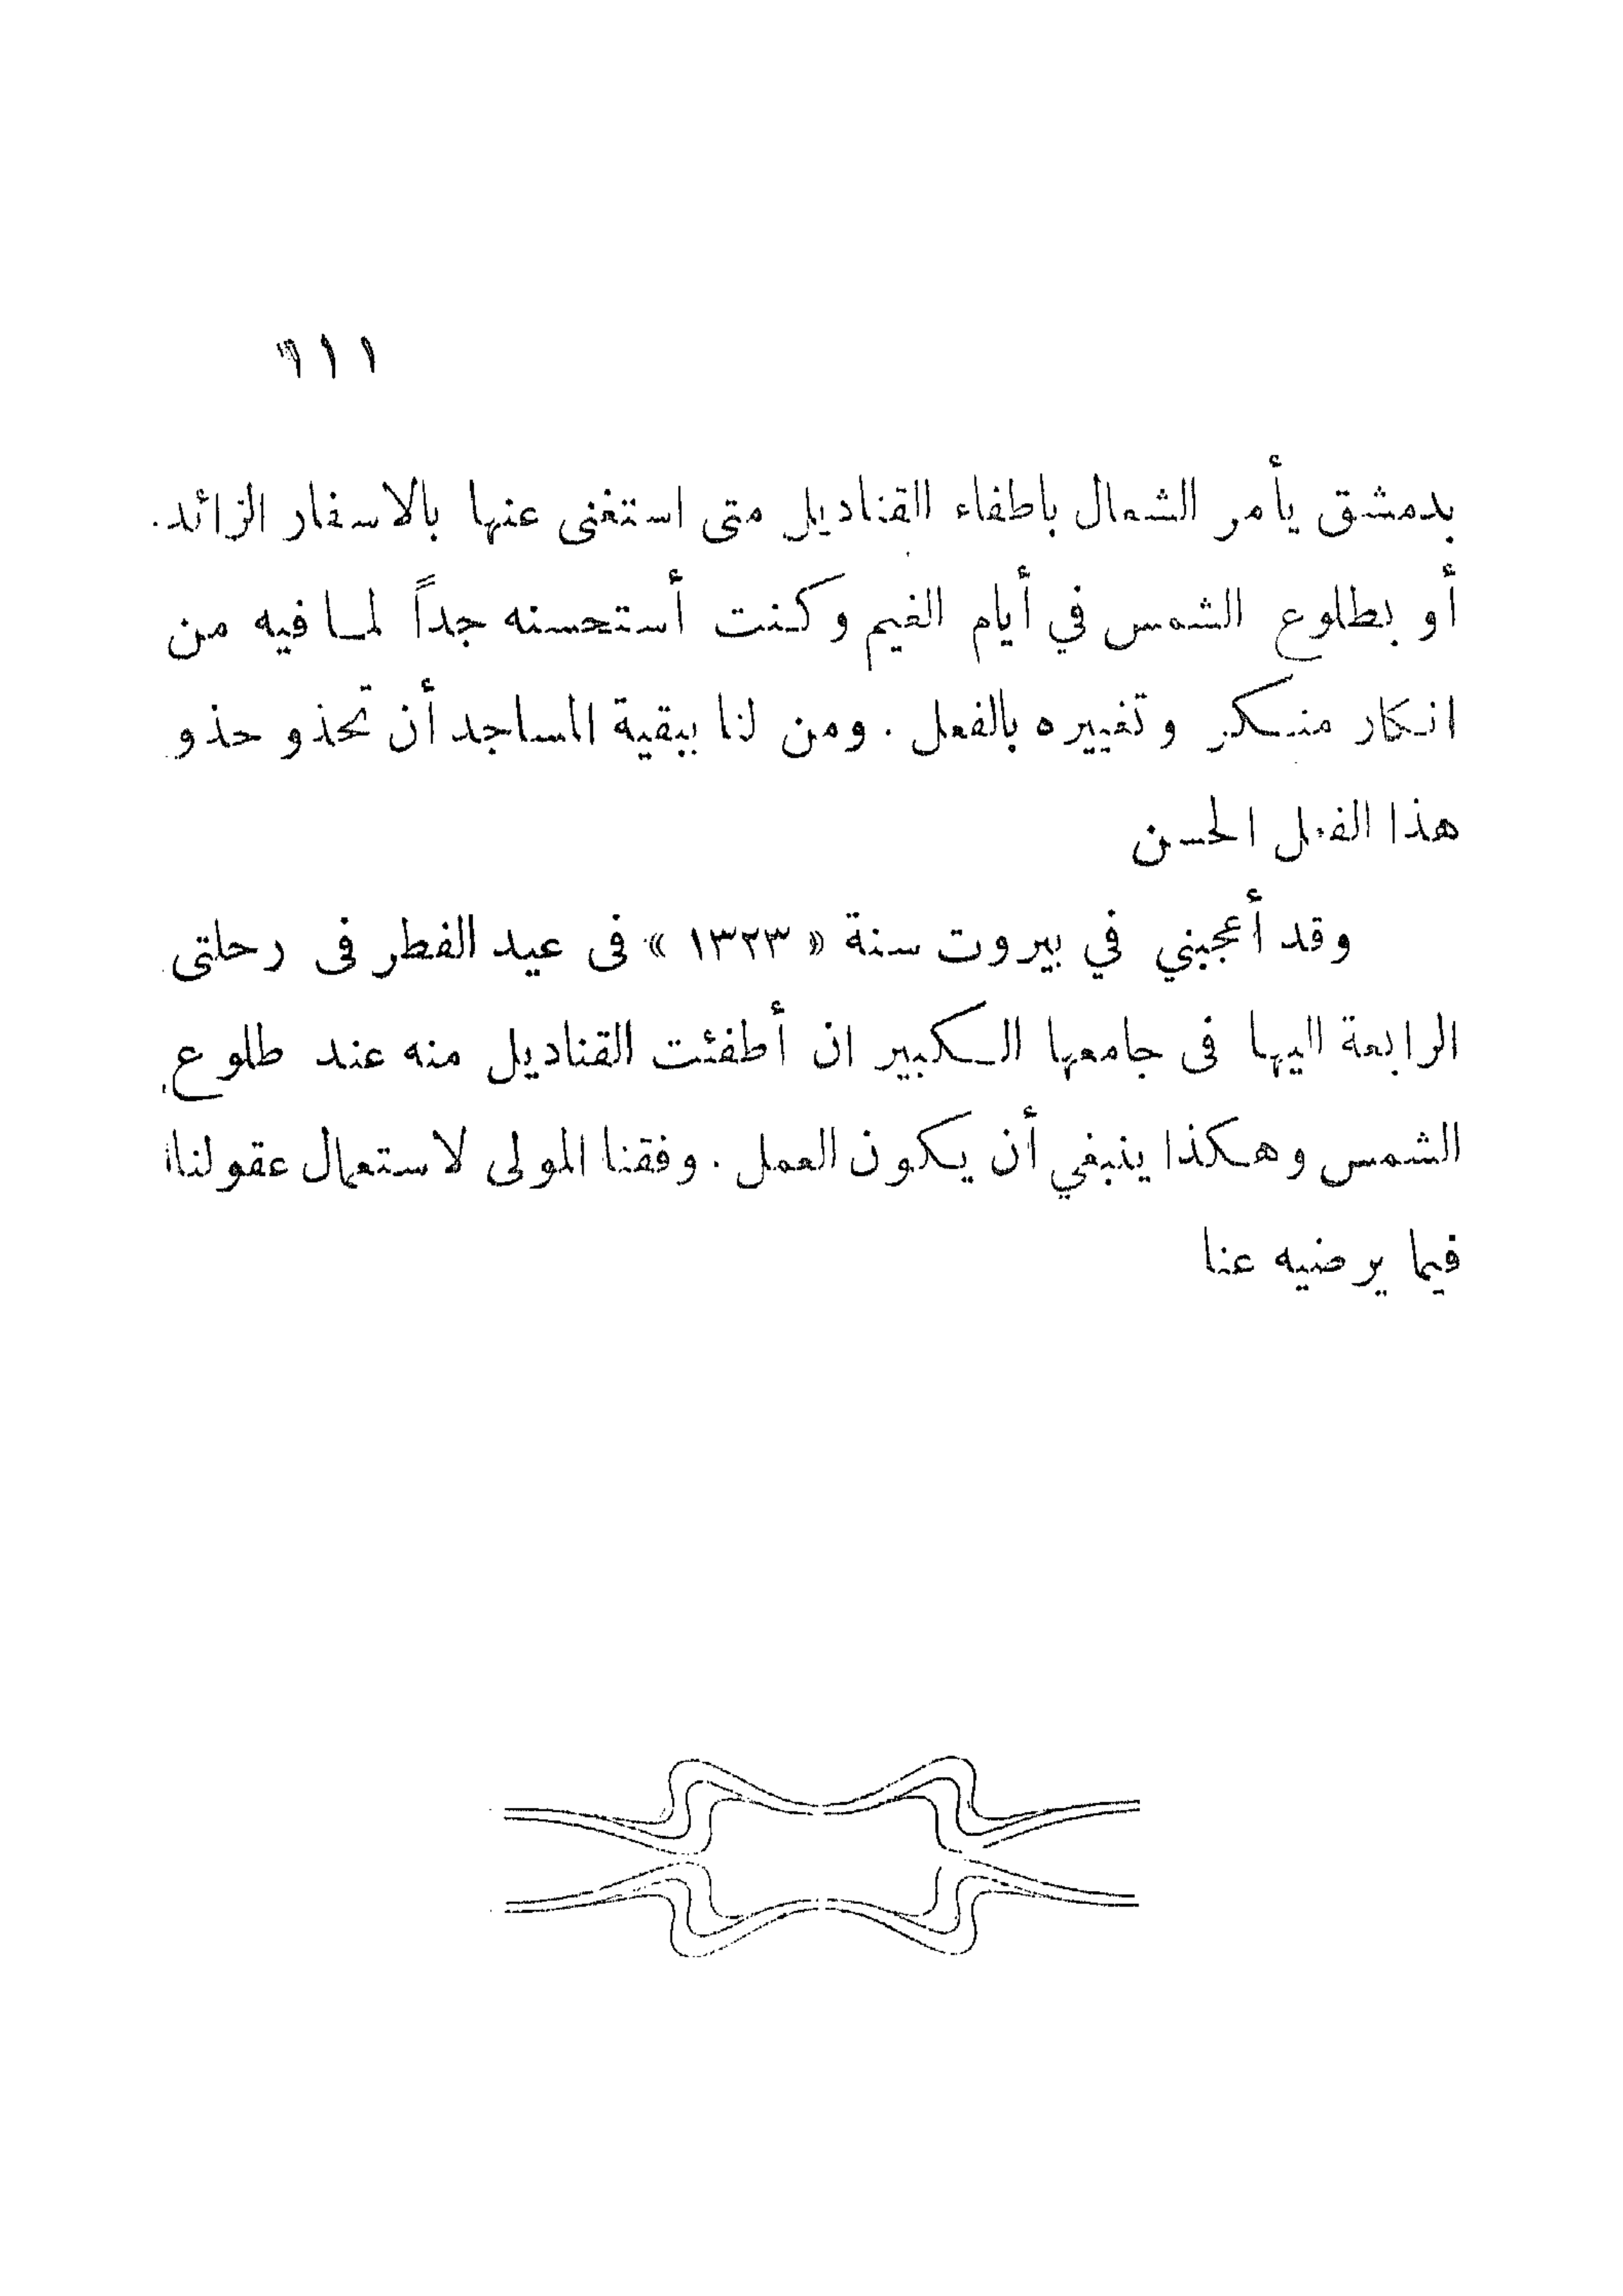 ١١١
بدمشق يأمر الشعال باطفاء القناديل متى استغنى عنها بالاسفار الزائد.
أو بطلوع الشمس في أيام الغيم وكنت أستحسنه جداً لما فيه من
انكار منكر وتغييره بالفعل . ومن لنا ببقية المساجد أن تحذو حذو
هذا الفعل الحسن
وقد أعجبني في بيروت سنة « ١٣٢٣ » فى عيد الفطر فى رحلتى
الرابعة اليها فى جامعها الكبير ان أطفئت القناديل منه عند طلوع
الشمس وهكذا ينبغي أن يكون العمل . وفقنا المولى لاستعمال عقولنا
فيما يرضيه عنا